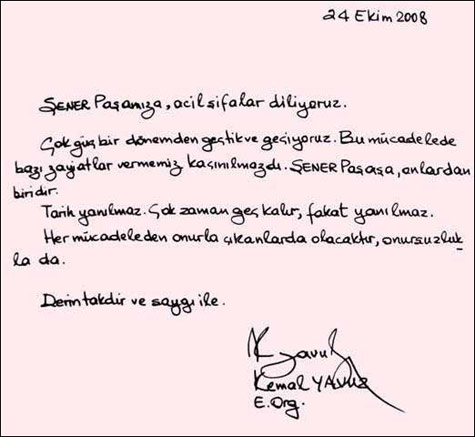 24 Ekim 2008
ŞENER Paşamıza, acil şifalar diliyoruz.
Çok güç bir dönemden geçtik ve geçiyoruz. Bu mücadelede
bazı zayiatlar vermemiz kaçınılmazdı. ŞENER Paşa, onlardan
biridir.
Tarih yanılmaz. Çok zaman geç kalır, fakat yanılmaz.
Her mücadeleden onurla çıkanlarda olacaktır, onursuzluk
la da.
Derin takdir ve saygı ile.
K Yavuz
Kemal YAVUZ
E. Org.